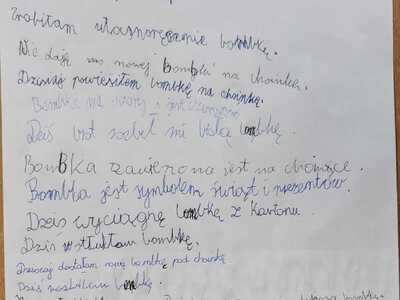 Zrobiłam własnoręcznie bombkę.
Nie dają mo nowej bombki na choinkę.
Dzisiaj powiesiłem bombkę na choinkę.
Bombka ma wzory i jest
Dziś brat zrobił mi bombkę.
Bombka zawieszona jest na choince.
Bombka jest symbolem świąt i prezentów.
Dziś wyciągnę bombkę z kartonu.
Dziś stłukłam bombkę.
Dzisiaj dostałam nową bombkę pod choinkę
Dziś bombkę.